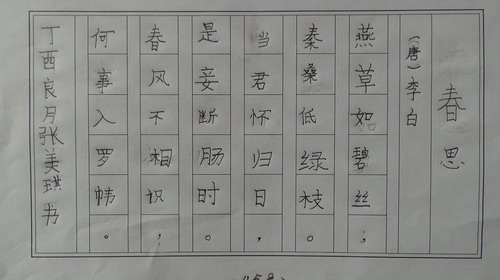 春思
（唐）李白
燕草如碧丝，
秦桑低绿枝。
当君怀归日，
是妾断肠时。
春风不相识，
何事入罗帏。
丁酉良月张美琪书